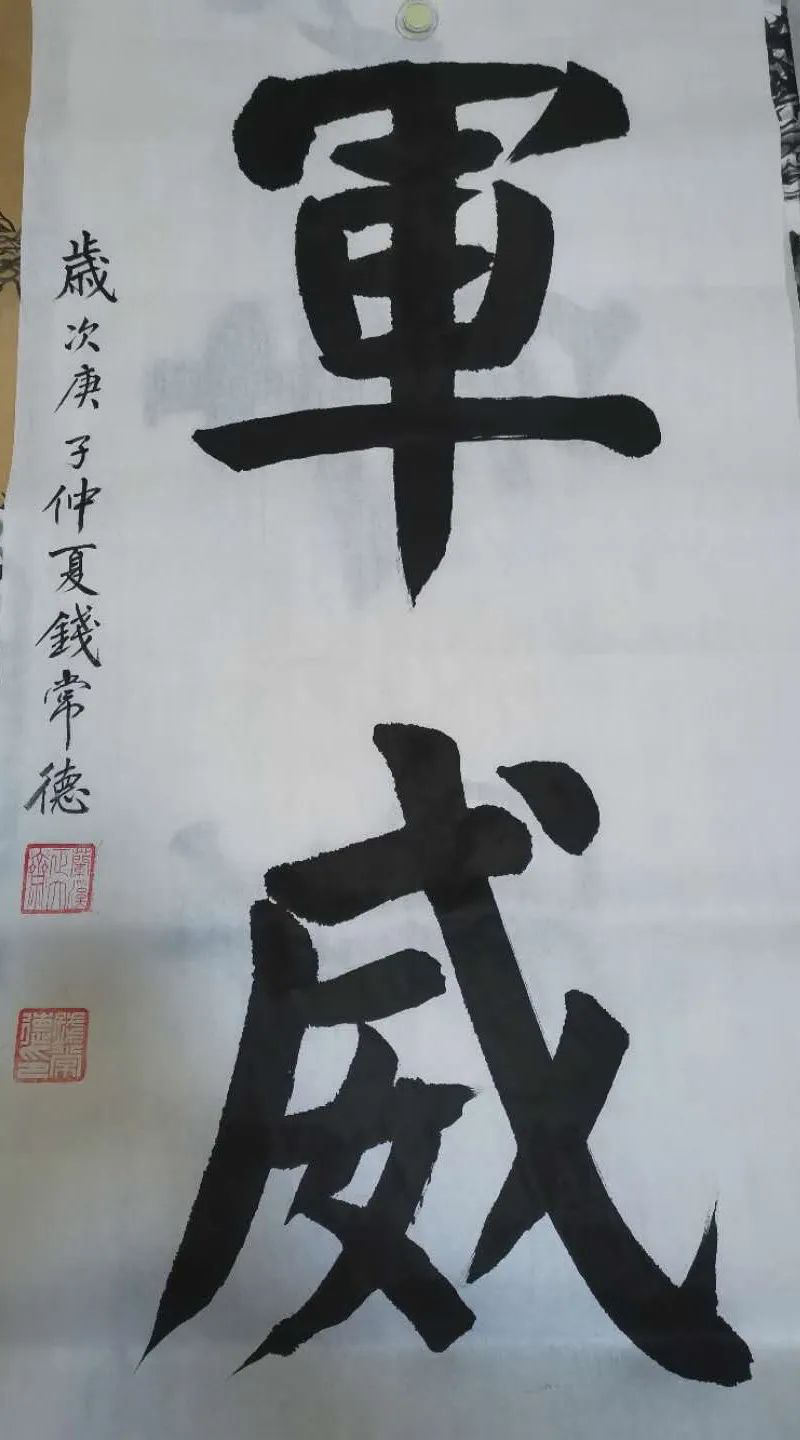 軍威
歲次庚子仲夏錢常德